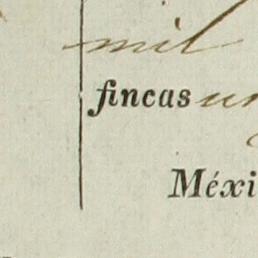 mil
fincas un
Méxi